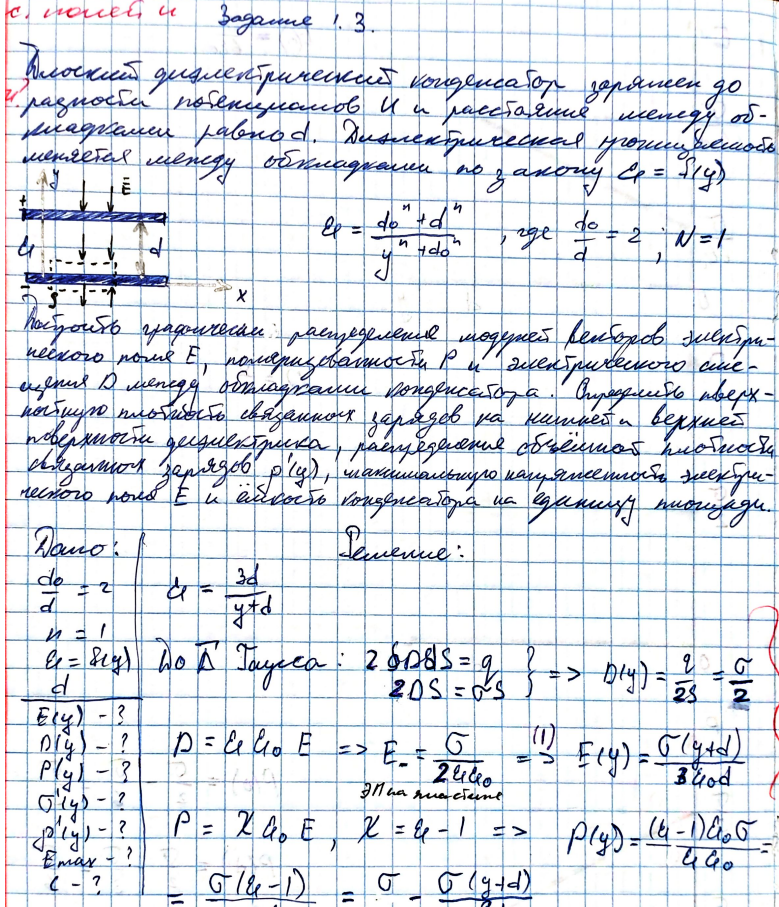 с. полей и
Задание 1.3.
Плоский диэлектрический конденсатор заряжен до
разности потенциалов U и расстояние между об-
кладками равно d. Диэлектрическая проницаемость
меняется между обкладками по закону ε = f(y)
y E̅
+
ε d
- S x
ε = (d₀ⁿ + dⁿ)/(yⁿ + d₀ⁿ) , где d₀/d = 2 ; N = 1
Построить графически распределение модулей векторов электри-
ческого поля E, поляризованности P и электрического сме-
щения D между обкладками конденсатора. Определить поверх-
ностную плотность связанных зарядов на нижней и верхней
поверхности диэлектрика, распределение объёмной плотности
связанных зарядов ρ'(y), максимальную напряженность электри-
ческого поля E и ёмкость конденсатора на единицу площади.
Дано: Решение:
d₀/d = 2
n = 1
ε = f(y)
d
E(y) - ?
D(y) - ?
P(y) - ?
σ'(y) - ?
ρ'(y) - ?
Emax - ?
C - ?
ε = 3d/(y+d)
По Гаусса: 2∮DdS = q
2DS = σS } => D(y) = q/2S = σ/2
D = εε₀E => E = σ/2εε₀ =(1)> E(y) = σ(y+d)/3ε₀d
ЭП на пластине
P = χε₀E , χ = ε - 1 => P(y) = (ε-1)ε₀σ/εε₀ =
= σ(ε-1) = σ - σ(y+d)